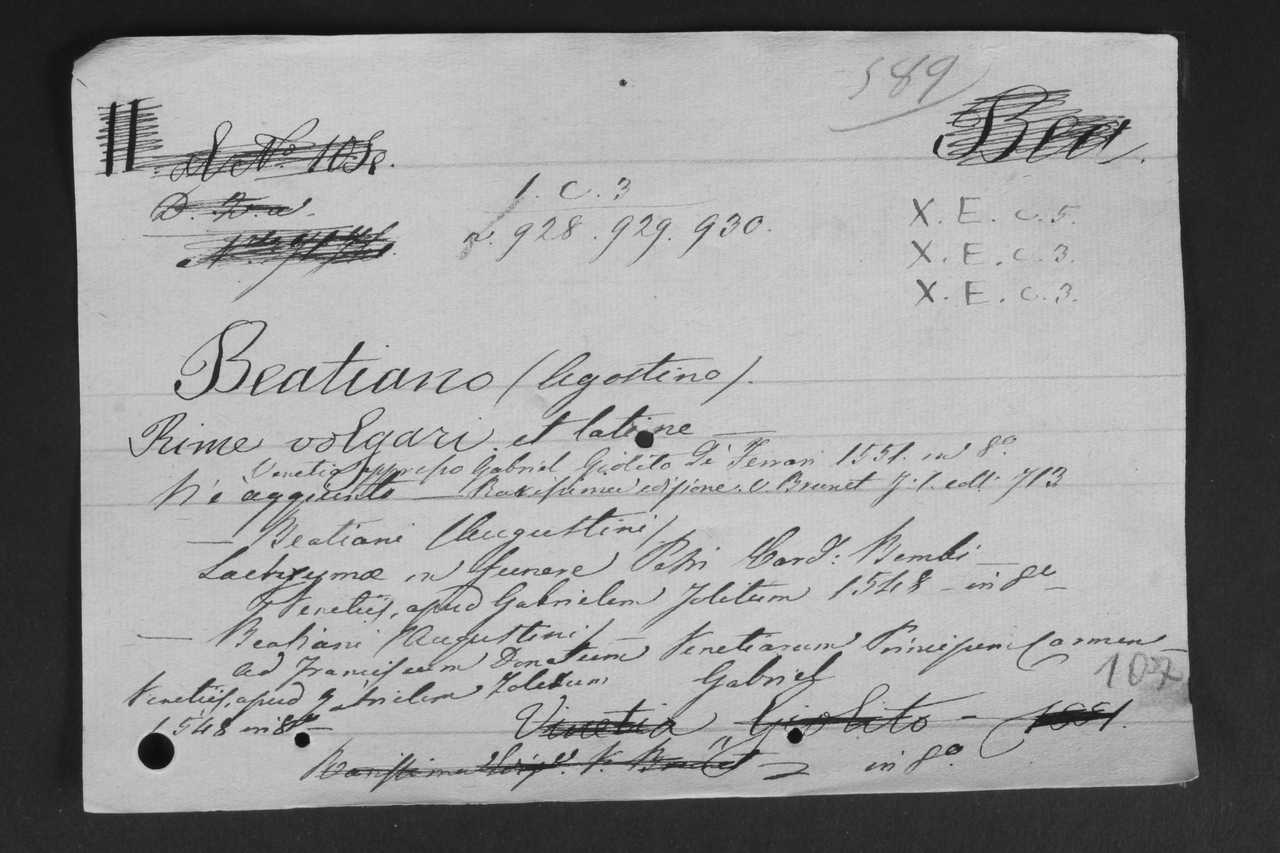 589
Bea
A N° 105
1. C. 3
928. 929. 930.
X. E. c. 5.
X. E. c. 3.
X. E. c. 3.
Beatiano (Agostino).
Rime volgari et latine —
Venetia appresso Gabriel Giolito Dè Ferrari 1551. in 8°
V'è aggiunto — Rarissima edizione. v. Brunet 713
— Beatiani (Augustini)
Lachrymæ in funere Petri Card: Bembi —
Venetiis, apud Gabrielem Jolitum 1548 - in 8° —
— Beatiani (Augustini)
ad Franciscum Donatum Venetiarum Principem Carmen —
Venetiis, apud Gabrielem Jolitum
1548 in 8° —
107
Gabriel
Vinetia Giolito - 1551.
Rarissima in 8°.